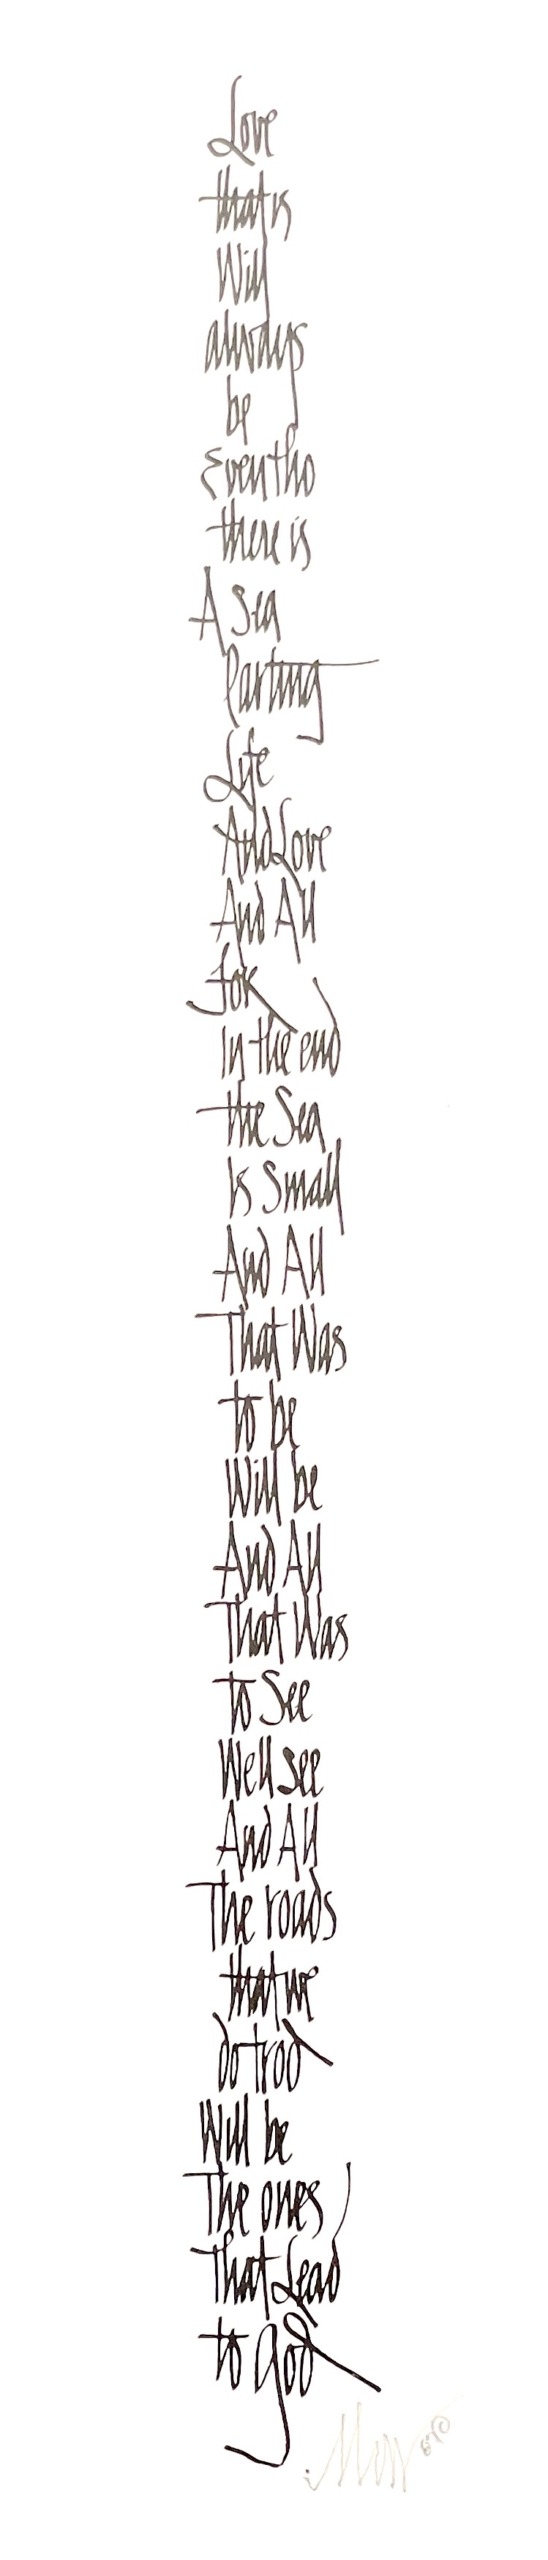 Love
that is
Will
always
be
Even tho
there is
A Sea
Parting
Life
And Love
And All
for
In the end
the Sea
Is Small
And All
That Was
to be
Will be
And All
That Was
to See
Well see
And All
The roads
that we
do trod
Will be
The ones
That Lead
to god